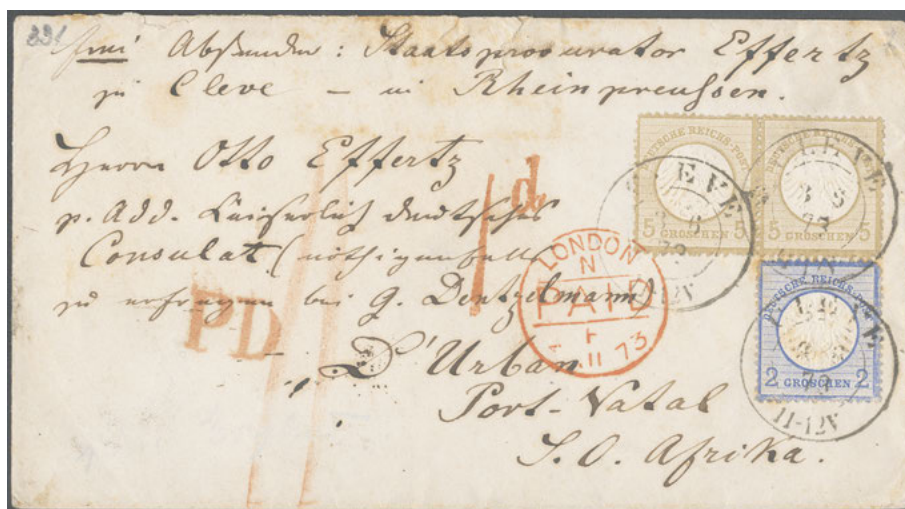 Absender: Staatsprocurator Effertz
zu Cleve — in Rheinpreussen.
Herrn Otto Effertz
p. Add. Kaiserlich deutsches
Consulat (nöthigenfalls
zu erfragen bei G. Dentzelmann)
D'Urban
Port-Natal
S. O. Afrika.
DEUTSCHE REICHS-POST
5 GROSCHEN 5
DEUTSCHE REICHS-POST
5 GROSCHEN 5
DEUTSCHE REICHS-POST
2 GROSCHEN 2
1 d.
LONDON
N
PAID
73
PD
EVE
11-12V